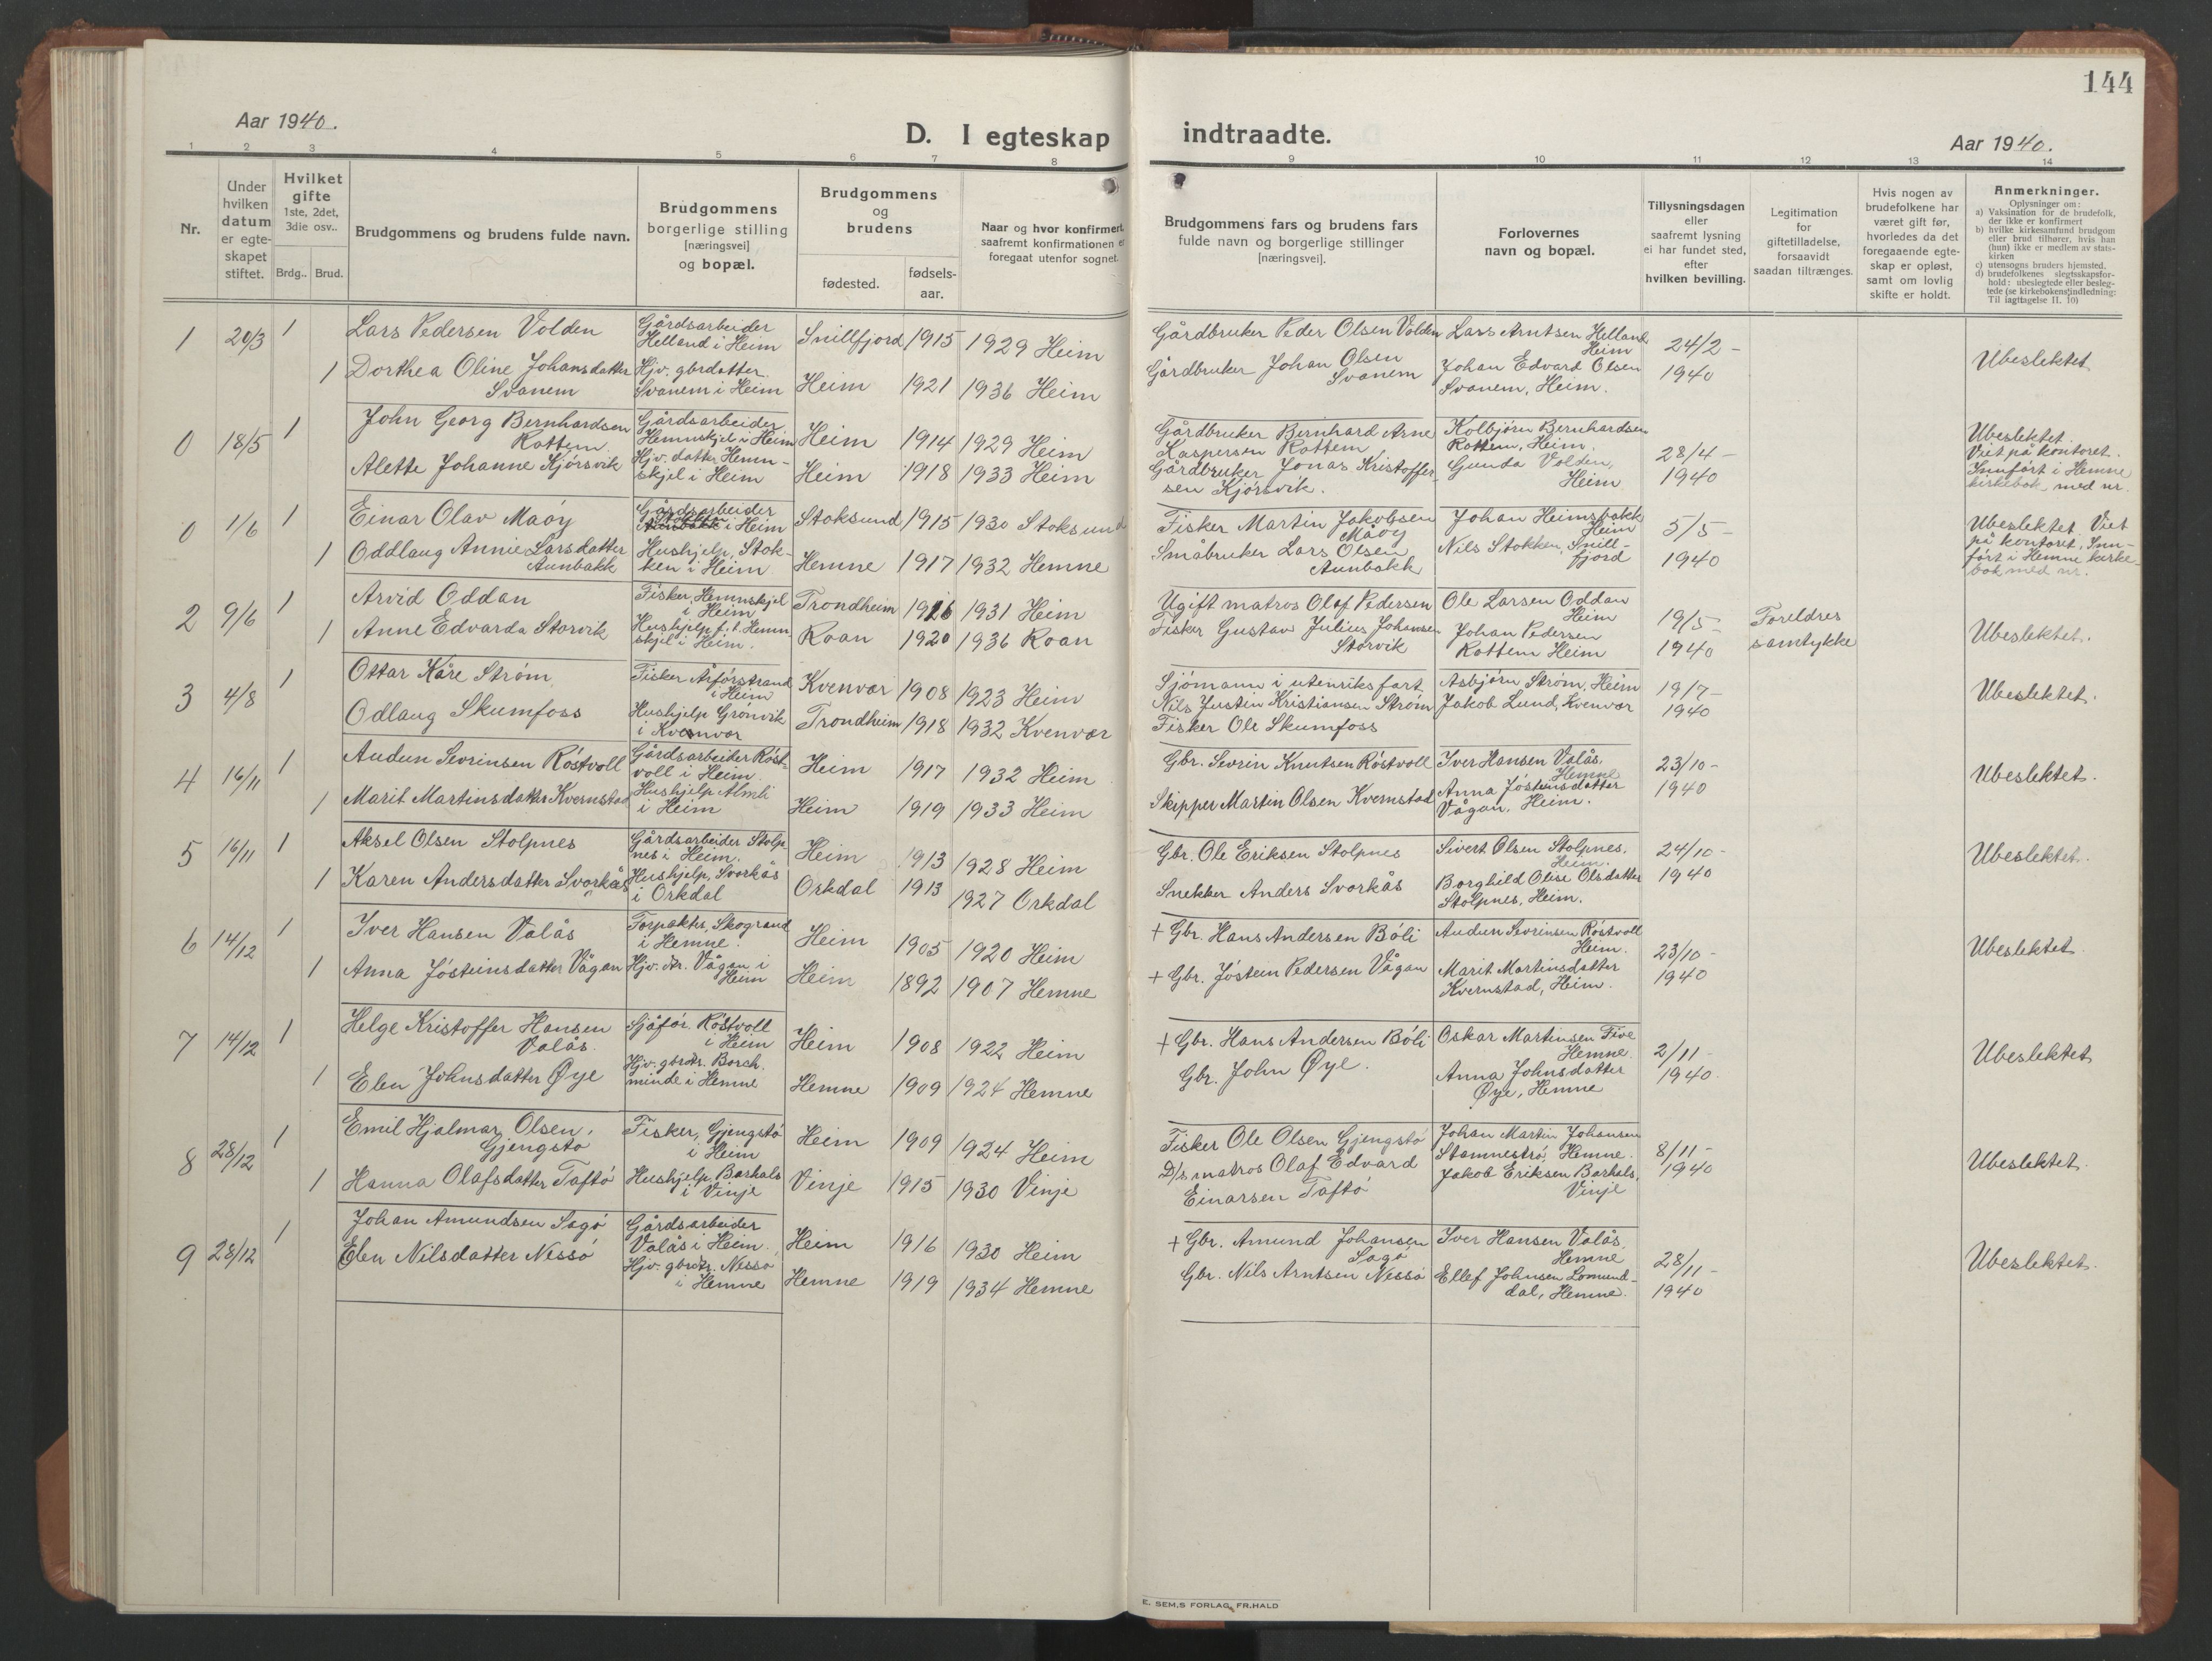 144
Aar 1940.
D. I egteskap indtraadte.
Aar 1940.
1 2 3 4 5 6 7 8 9 10 11 12 13 14
Nr.
Under
hvilken
datum
er egte-
skapet
stiftet.
Hvilket
gifte
1ste, 2det,
3die osv..
Brdg.. Brud.
Brudgommens og brudens fulde navn.
Brudgommens
borgerlige stilling
[næringsvei]
og bopæl.
Brudgommens
og
brudens
fødested.
fødsels-
aar.
Naar og hvor konfirmert,
saafremt konfirmationen er
foregaat utenfor sognet.
Brudgommens fars og brudens fars
fulde navn og borgerlige stillinger
[næringsvei].
Forlovernes
navn og bopæl.
Tillysningsdagen
eller
saafremt lysning
ei har fundet sted,
efter
hvilken bevilling.
Legitimation
for
giftetilladelse,
forsaavidt
saadan tiltrænges.
Hvis nogen av
brudefolkene har
været gift før,
hvorledes da det
foregaaende egte-
skap er opløst,
samt om lovlig
skifte er holdt.
Anmerkninger.
Oplysninger om:
a) Vaksination for de brudefolk,
der ikke er konfirmert
b) hvilke kirkesamfund brudgom
eller brud tilhører, hvis han
(hun) ikke er medlem av stats-
kirken
c) utensogns bruders hjemsted.
d) brudefolkenes slegtsskapsfor-
hold: ubeslegtede eller besleg-
tede (se kirkebokens indledning:
Til iagttagelse II. 10)
1 20/3 1 Lars Pedersen Volden
Gårdsarbeider
Helland i Heim
Snillfjord 1915 1929 Heim
Gårdbruker Peder Olsen Volden
Lars Arntsen Helland
Heim
24/2 -
1940
Ubeslektet
1 Dorthea Oline Johansdatter
Svanem
Hjv. gbrdatter.
Svanem i Heim
Heim 1921 1936 Heim
Gårdbruker Johan Olsen
Svanem
Johan Edvard Olsen
Svanem, Heim.
0 18/5 1 John Georg Bernhardsen
Rottem
Gårdsarbeider
Hemnskjel i Heim
Heim 1914 1929 Heim
Gårdbruker Bernhard Arne
Kaspersen Rottem
Kolbjørn Bernhardsen
Rottem, Heim.
28/4 -
1940
Ubeslektet.
Viet på kontoret.
Innført i Hemne
kirkebok med nr.
Alette Johanne Kjørsvik
Hjv. datter Hemn-
skjel i Heim
Heim 1918 1933 Heim
Gårdbruker Jonas Kristoffer-
sen Kjørsvik.
Gunda Volden,
Heim
0 1/6 1 Einar Olav Maøy
Gårdsarbeider
i Heim
Stoksund 1915 1930 Stoksund
Fisker Martin Jakobsen
Måøy
Johan Heimsbakk
Heim
5/5 -
1940
Ubeslektet. Viet
på kontoret. Inn-
ført i Hemne kirke-
bok med nr.
1 Oddlaug Annie Larsdatter
Aunbakk
Hushjelp, Stok-
ken i Heim
Hemne 1917 1932 Hemne
Småbruker Lars Olsen
Aunbakk
Nils Stokken, Snill-
fjord
2 9/6 1 Arvid Oddan
Fisker, Hemnskjel
i Heim
Trondheim 1916 1931 Heim
Ugift matros Olaf Pedersen
Ole Larsen Oddan
Heim
19/5 -
1940
Foreldres
samtykke
Ubeslektet.
1 Anne Edvarda Storvik
Hushjelp f. t. Hemn
skjel i Heim.
Roan 1920 1936 Roan
Fisker Gustav Julius Johansen
Storvik
Johan Pedersen
Rottem Heim
3 4/8 1 Ottar Kåre Strøm
Fisker Årforstrand
i Heim
Kvenvær 1908 1923 Heim
Sjømann i utenriksfart
Nils Justin Kristiansen Strøm
Asbjørn Strøm, Heim
19/7 -
1940
Ubeslektet.
Odlaug Skumfoss
Hushjelp Grønvik
i Kvenvær
Trondheim 1918 1932 Kvenvær
Fisker Ole Skumfoss
Jakob Lund, Kvenvær
4 16/11 1 Audun Sevrinsen Røstvoll
Gårdsarbeider Røst-
voll i Heim.
Heim 1917 1932 Heim
Gbr. Sevrin Knutsen Røstvoll
Iver Hansen Valås.
Hemne
23/10 -
1940
Ubeslektet.
1 Marit Martinsdatter Kvernstad
Hushjelp Almli
i Heim
Heim 1919 1933 Heim
Skipper Martin Olsen Kvernstad
Anna Jøsteinsdatter
Vågan. Heim.
5 16/11 1 Aksel Olsen Stolpnes
Gårdsarbeider Stolp
nes i Heim.
Heim 1913 1928 Heim
Gbr. Ole Eriksen Stolpnes
Sivert Olsen Stolpnes.
Heim.
24/10 -
1940
Ubeslektet.
1 Karen Andersdatter Svorkås
Hushjelp, Svorkås
i Orkdal
Orkdal 1913 1927 Orkdal
Snekker Anders Svorkås
Borghild Olise Olsdatter
Stolpnes, Heim.
6 14/12 1 Iver Hansen Valås
Forpakter, Skogrand
i Hemne.
Heim 1905 1920 Heim
+ Gbr. Hans Andersen Bøli
Audun Sevrinsen Røstvoll
Heim.
23/10 -
1940
Ubeslektet.
1 Anna Jøsteinsdatter Vågan
Hjv. dtr. Vågan i
Heim
Heim 1892 1907 Hemne
+ Gbr. Jøstein Pedersen Vågan
Marit Martinsdatter
Kvernstad, Heim.
7 14/12 1 Helge Kristoffer Hansen
Valås.
Sjåfør. Røstvoll
i Heim
Heim 1908 1922 Heim
+ Gbr. Hans Andersen Bøli
Oskar Martinsen Five
Hemne.
2/11 -
1940.
Ubeslektet
1 Elen Johnsdatter Øye
Hjv. gbrdtr. Borch.
minde i Hemne
Hemne 1909 1924 Hemne
Gbr. John Øye.
Anna Johnsdatter
Øye, Hemne
8 28/12 1 Emil Hjalmar Olsen
Gjengstø
Fisker, Gjengstø
i Heim
Heim 1909 1924 Heim
Fisker Ole Olsen Gjengstø
Johan Martin Johansen
Stamnestrø, Hemne.
8/11 -
1940
Ubeslektet.
1 Hanna Olafsdatter Taftø
Hushjelp, Barhals
i Vinje
Vinje 1915 1930 Vinje
D/s matros Olaf Edvard
Einarsen Taftø
Jakob Eriksen Barhals,
Vinje
9 28/12 1 Johan Amundsen Sagø
Gårdsarbeider
Valås i Heim.
Heim 1916 1930 Heim
+ Gbr. Amund Johansen
Sagø
Iver Hansen Valås,
Hemne
28/11 -
1940
Ubeslektet.
Elen Nilsdatter Nessø
Hjv. gbrdtr. Nessø
i Hemne
Hemne 1919 1934 Hemne
Gbr. Nils Arntsen Nessø
Ellef Johnsen Lomund-
dal, Hemne.
E. SEM,S FORLAG, FR.HALD